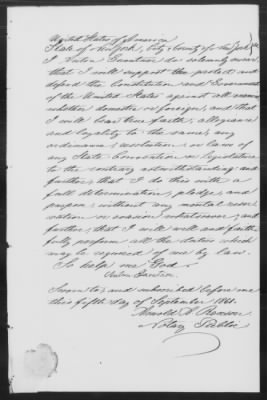 United States of America
State of New York, City & County of New York ss
I Anton do solemnly swear
that I will support, protect and
defend the Constitution and Government
of the United States against all enemies
whether domestic or foreign, and that
I will bear true faith, allegiance
and loyalty to the same, any
ordinance, resolution or law of
any State Convention or legislature
to the contrary notwithstanding and
further, that I do this with a
full determination, pledge, and
purpose, without any mental reser
vation or evasion whatsoever; and
further, that I will well and faith
fully perform all the duties which
may be required of me by law.
So help me God.
Anton
Sworn to and subscribed before me
this fifth day of September 1861.
Arnold
Notary Public